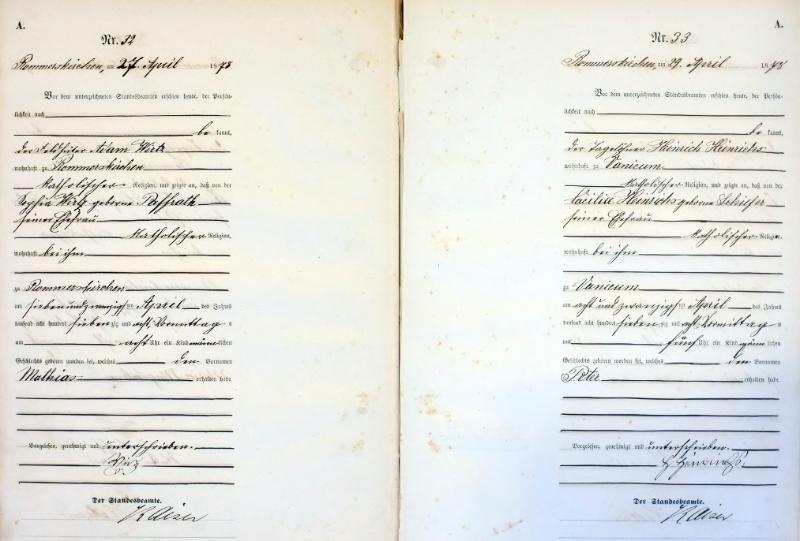 A.
Nr. 32
Rommerskirchen, am 27. April 1878
Vor dem unterzeichneten Standesbeamten erschien heute, der Persön-
lichkeit nach
be kannt,
der Feldhüter Adam Wirtz
wohnhaft zu Rommerskirchen
katholischer Religion, und zeigte an, daß von der
Sophia Wirtz geborne Paffrath
seiner Ehefrau
katholischer Religion,
wohnhaft bei ihm
zu Rommerskirchen
am siebenundzwanzigsten April des Jahres
tausend acht hundert sieben zig und acht, Vormittags
um acht Uhr ein Kind männlichen
Geschlechts geboren worden sei, welches den Vornamen
Mathias erhalten habe
Vorgelesen, genehmigt und unterschrieben.
Wirtz
Der Standesbeamte.
Kaiser
A.
Nr. 33
Rommerskirchen, am 29. April 1878
Vor dem unterzeichneten Standesbeamten erschien heute, der Persön-
lichkeit nach
be kannt,
der Tagelöhner Heinrich Heinrichs
wohnhaft zu Vanicum
katholischer Religion, und zeigte an, daß von der
Cäcilia Heinrichs geborne Schiffer
seiner Ehefrau
katholischer Religion,
wohnhaft bei ihm
zu Vanicum
am acht und zwanzigsten April des Jahres
tausend acht hundert sieben zig und acht, Vormittags
um fünf Uhr ein Kind männlichen
Geschlechts geboren worden sei, welches den Vornamen
Peter erhalten habe
Vorgelesen, genehmigt und unterschrieben.
H Heinrichs.
Der Standesbeamte.
Kaiser